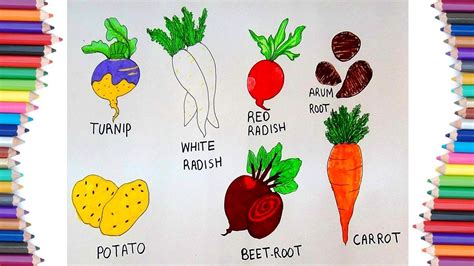 TURNIP
WHITE
RADISH
RED
RADISH
ARUM
ROOT
POTATO
BEET-ROOT
CARROT